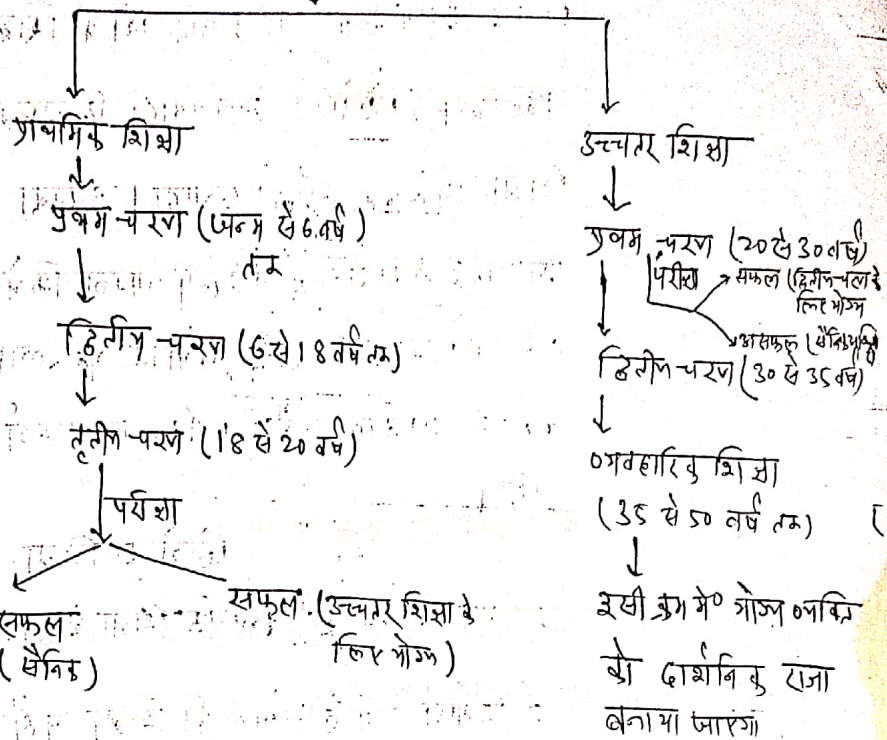 प्राथमिक शिक्षा
प्रथम चरण (जन्म से 6 वर्ष)
तक
द्वितीय चरण (6 से 18 वर्ष तक)
तृतीय चरण (18 से 20 वर्ष)
परीक्षा
सफल
(सैनिक)
सफल (उच्चतर शिक्षा के
लिए योग्य)
उच्चतर शिक्षा
प्रथम चरण (20 से 30 वर्ष)
परीक्षा
सफल (द्वितीय चरण के
लिए योग्य
असफल (सैनिक
द्वितीय चरण (30 से 35 वर्ष)
व्यवहारिक शिक्षा
(35 से 50 वर्ष तक)
इसी क्रम में योग्य व्यक्ति
को दार्शनिक राजा
बनाया जाएगा